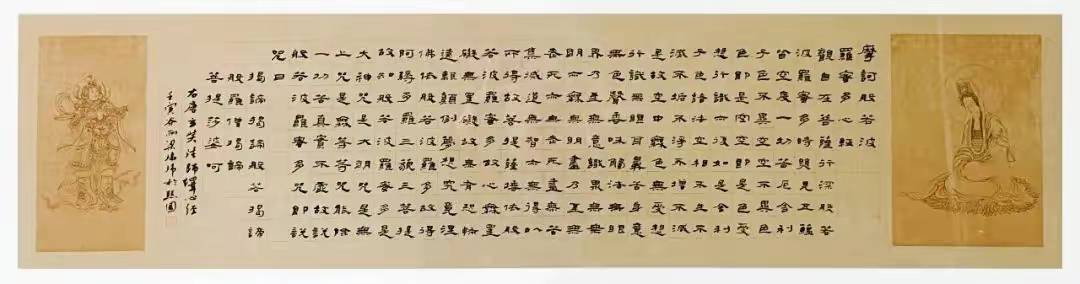 摩訶般若波
羅蜜多心經
觀自在菩薩行深般若
波羅蜜多時照見五蘊
皆空度一切苦厄舍利
子色不異空空不異色
色即是空空即是色受
想行識亦復如是舍利
子是諸法空相不生不
滅不垢不淨不增不減
是故空中無色無受想
行識無眼耳鼻舌身意
無色聲香味觸法無眼
界乃至無意識界無無
明亦無無明盡乃至無
老死亦無老死盡無苦
集滅道無智亦無得以
所得故菩提薩埵依般
若波羅蜜多故心無罣
礙無罣礙故無有恐怖
遠離顛倒夢想究竟涅
佛依般若波羅多故得
阿耨多羅三藐三菩提
故知般若波羅蜜多是
大神咒是大明咒是無
上咒是無等等咒能除
一切苦真實不虛故說
般若波羅蜜多咒即說
咒曰
揭諦揭諦般若揭諦
般羅僧揭諦
菩提莎婆呵
右唐玄奘法師譯心經
壬寅春雨梁